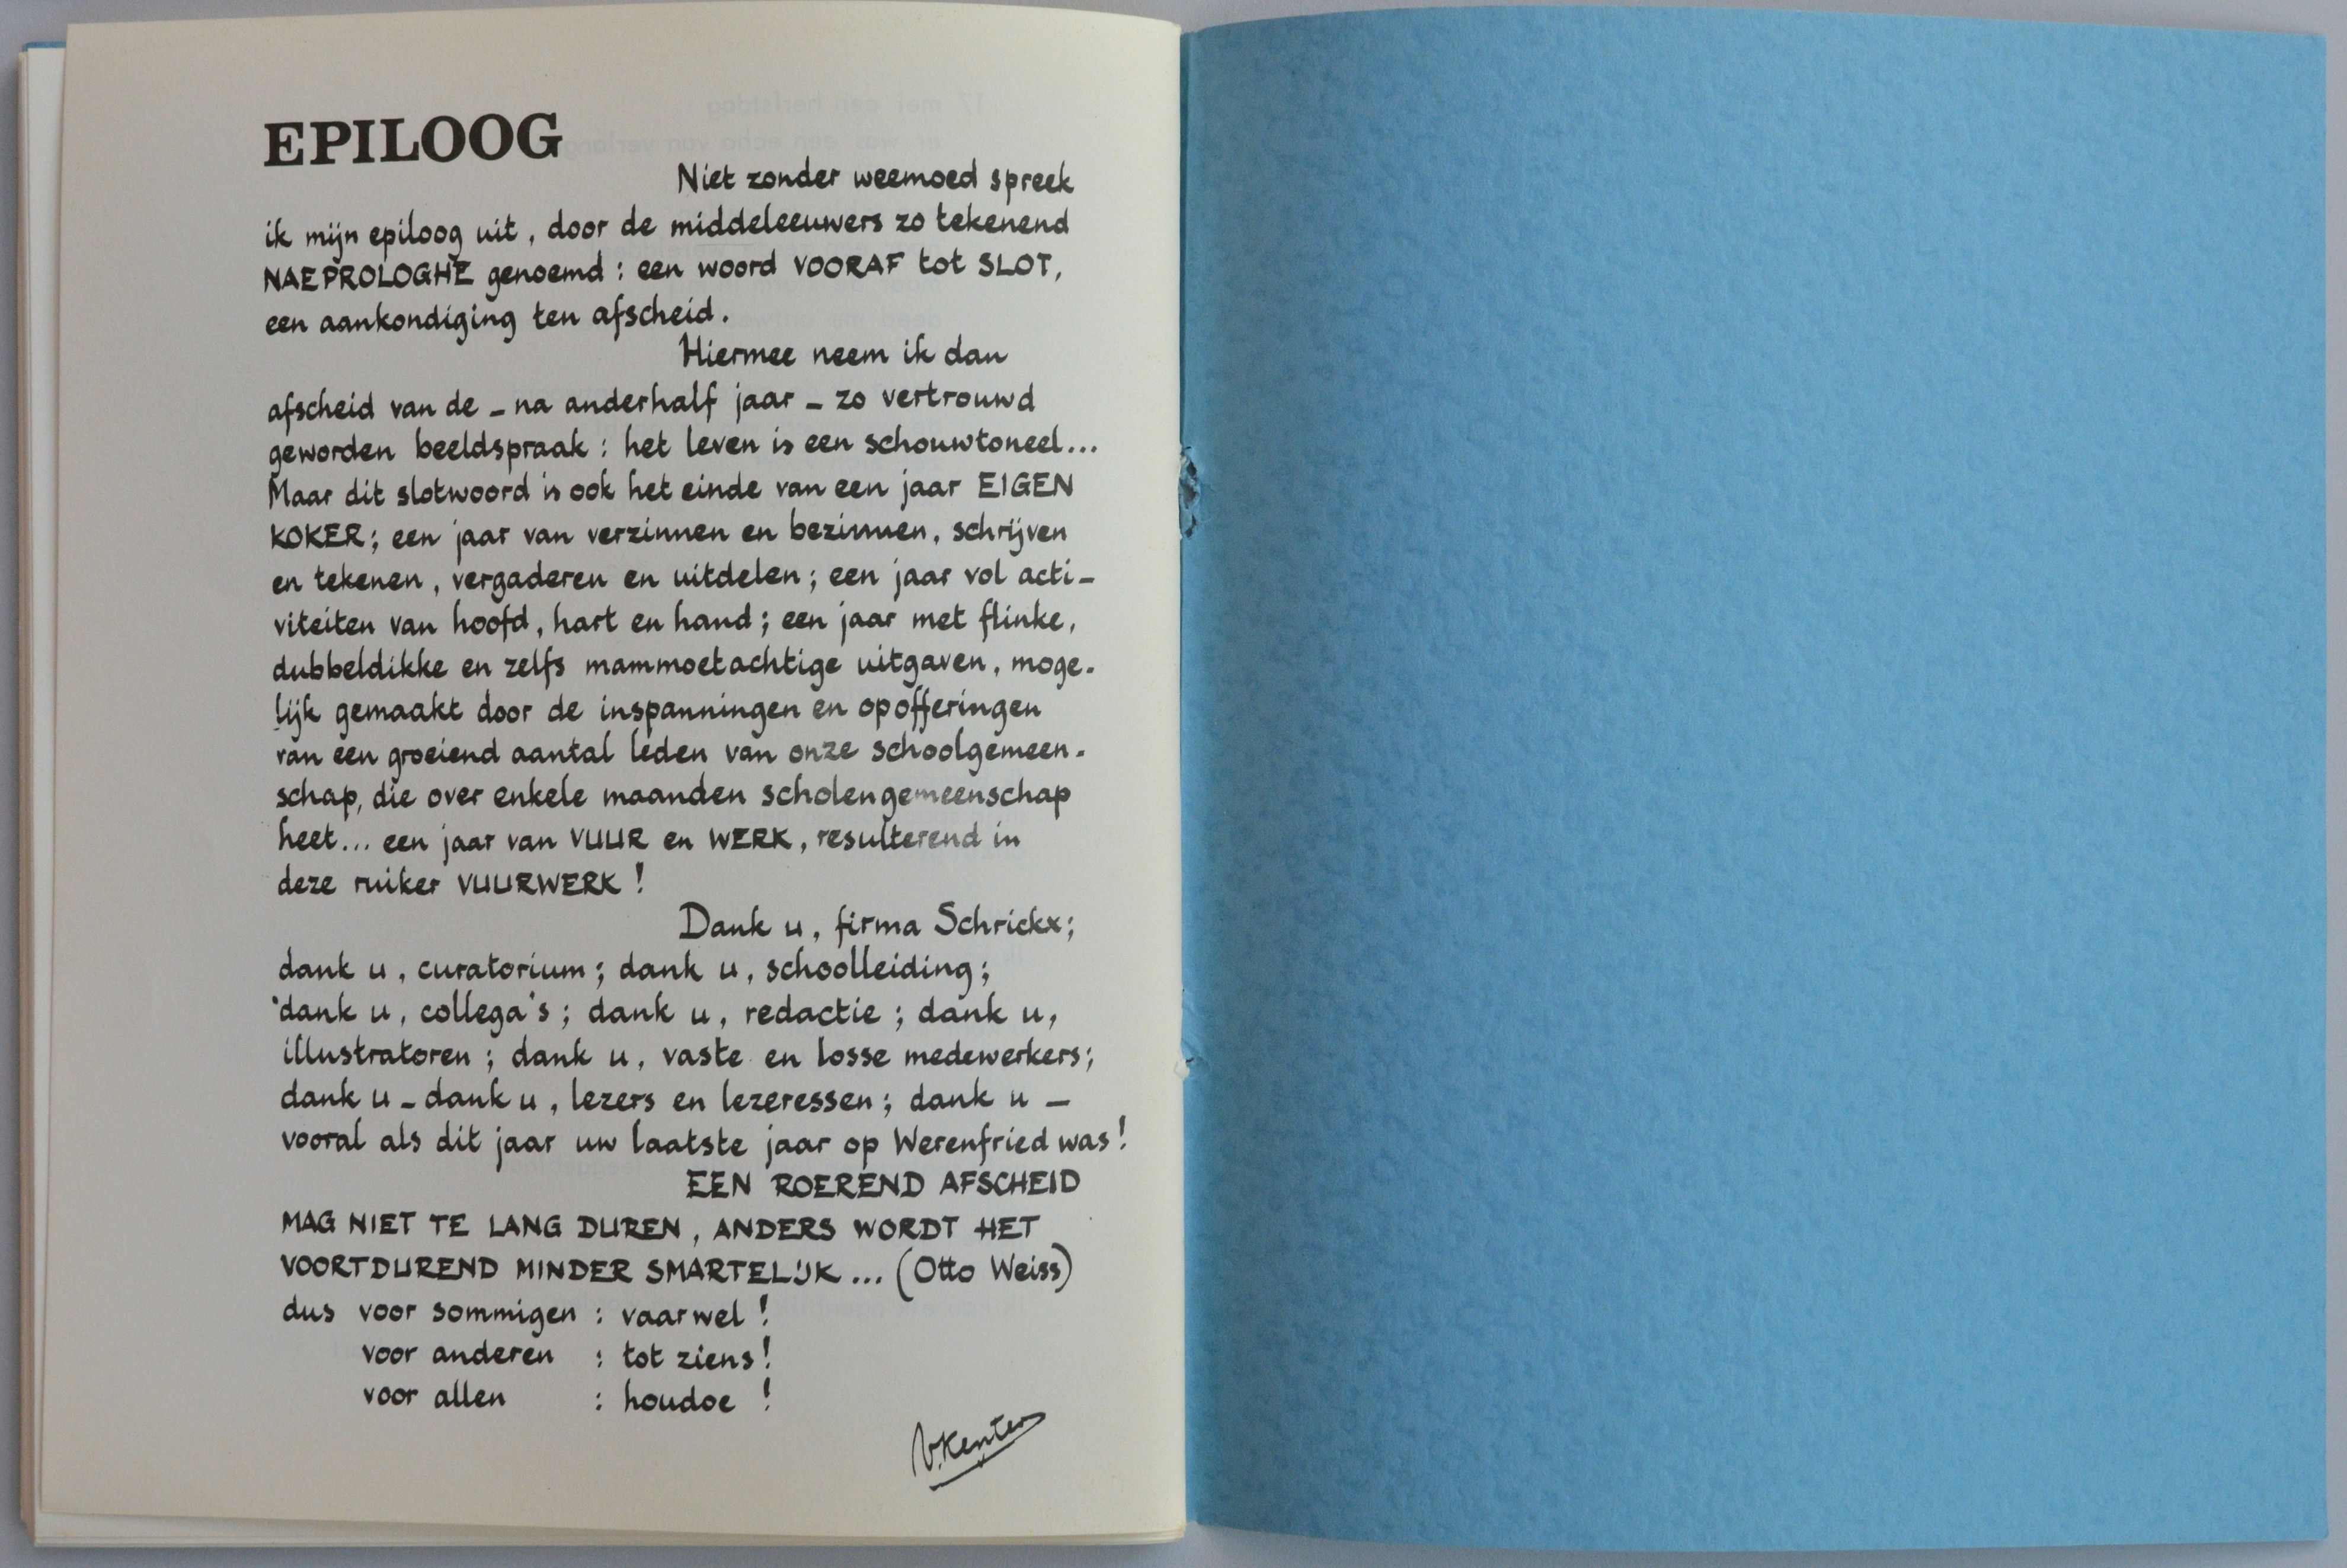 EPILOOG
Niet zonder weemoed spreek
ik mijn epiloog uit, door de middeleeuwers zo tekenend
NAEPROLOGHE genoemd : een woord VOORAF tot SLOT,
een aankondiging ten afscheid.
Hiermee neem ik dan
afscheid van de – na anderhalf jaar – zo vertrouwd
geworden beeldspraak : het leven is een schouwtoneel...
Maar dit slotwoord is ook het einde van een jaar EIGEN
KOKER; een jaar van verzinnen en bezinnen, schrijven
en tekenen, vergaderen en uitdelen; een jaar vol acti-
viteiten van hoofd, hart en hand; een jaar met flinke,
dubbeldikke en zelfs mammoetachtige uitgaven, moge-
lijk gemaakt door de inspanningen en opofferingen
van een groeiend aantal leden van onze schoolgemeen-
schap, die over enkele maanden scholengemeenschap
heet... een jaar van VUUR en WERK, resulterend in
deze ruiker VUURWERK !
Dank u, firma Schrickx;
dank u, curatorium; dank u, schoolleiding;
dank u, collega's; dank u, redactie; dank u,
illustratoren; dank u, vaste en losse medewerkers;
dank u – dank u, lezers en lezeressen; dank u –
vooral als dit jaar uw laatste jaar op Werenfried was!
EEN ROEREND AFSCHEID
MAG NIET TE LANG DUREN, ANDERS WORDT HET
VOORTDUREND MINDER SMARTELIJK... (Otto Weiss)
dus voor sommigen : vaarwel !
voor anderen : tot ziens!
voor allen : houdoe !